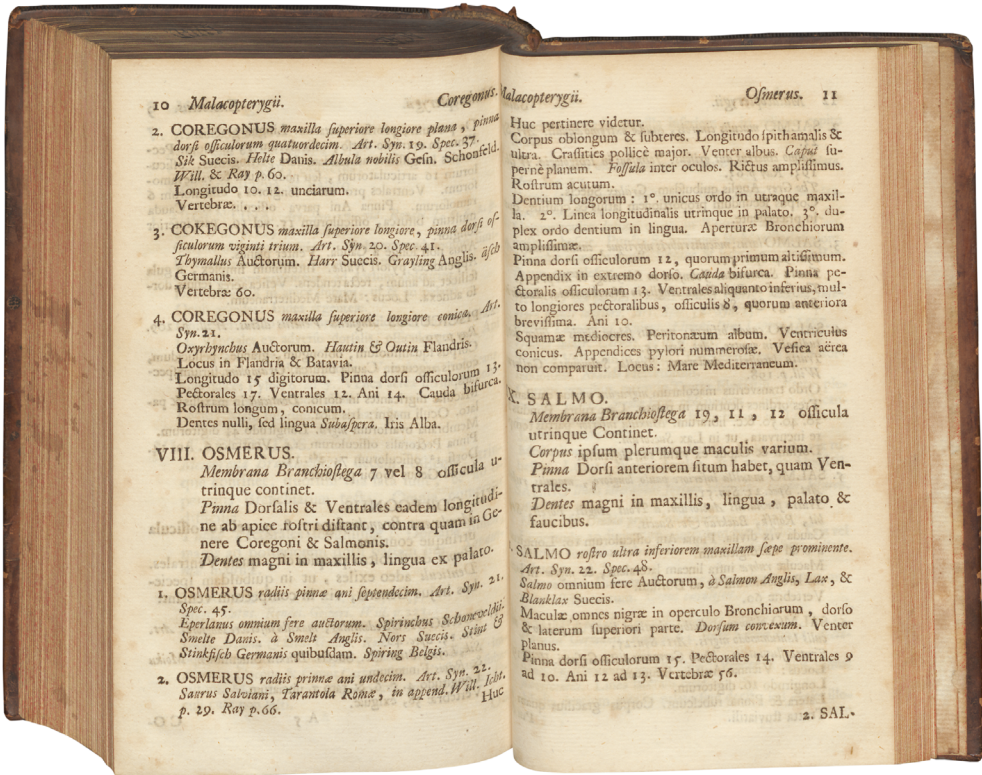 10 Malacopterygii. Coregonus.
2. COREGONUS maxilla superiore longiore plana, pinna
dorsi ossiculorum quatuordecim. Art. Syn. 19. Spec. 37.
Sik Suecis. Helte Danis. Albula nobilis Gesn. Schonfeld.
Will. & Ray p. 60.
Longitudo 10. 12. unciarum.
Vertebræ. . . .
3. COKEGONUS maxilla superiore longiore, pinna dorsi os-
siculorum viginti trium. Art. Syn. 20. Spec. 41.
Thymallus Auctorum. Harr Suecis. Grayling Anglis. äsch
Germanis.
Vertebræ 60.
4. COREGONUS maxilla superiore longiore conica. Art.
Syn. 21.
Oxyrhynchus Auctorum. Hautin & Outin Flandris.
Locus in Flandria & Batavia.
Longitudo 15 digitorum. Pinna dorsi ossiculorum 13.
Pectorales 17. Ventrales 12. Ani 14. Cauda bifurca.
Rostrum longum, conicum.
Dentes nulli, sed lingua Subaspera. Iris Alba.
VIII. OSMERUS.
Membrana Branchiostega 7 vel 8 ossicula u-
trinque continet.
Pinna Dorsalis & Ventrales eadem longitudi-
ne ab apice rostri distant, contra quam in Ge-
nere Coregoni & Salmonis.
Dentes magni in maxillis, lingua ex palato.
1. OSMERUS radiis pinnæ ani septendecim. Art. Syn. 21.
Spec. 45.
Eperlanus omnium fere auctorum. Spirinchus Schoneveldii.
Smelte Danis. à Smelt Anglis. Nors Suecis. Stint &
Stinkfisch Germanis quibusdam. Spiring Belgis.
2. OSMERUS radiis prinnæ ani undecim. Art. Syn. 22.
Saurus Salviani, Tarantola Romæ, in append. Will. Icht.
p. 29. Ray p. 66.
Huc
Malacopterygii. Osmerus. 11
Huc pertinere videtur.
Corpus oblongum & subteres. Longitudo spithamalis &
ultra. Crassities pollice major. Venter albus. Caput su-
pernè planum. Fossula inter oculos. Rictus amplissimus.
Rostrum acutum.
Dentium longorum: 1°. unicus ordo in utraque maxil-
la. 2°. Linea longitudinalis utrinque in palato. 3°. du-
plex ordo dentium in lingua. Aperturæ Bronchiorum
amplissimæ.
Pinna dorsi ossiculorum 12, quorum primum altissimum.
Appendix in extremo dorso. Cauda bifurca. Pinna pe-
ctoralis ossiculorum 13. Ventrales aliquanto inferius, mul-
to longiores pectoralibus, ossiculis 8, quorum anteriora
brevissima. Ani 10.
Squamæ mediocres. Peritonæum album. Ventriculus
conicus. Appendices pylori nummerosæ. Vesica aërea
non comparuit. Locus: Mare Mediterraneum.
X. SALMO.
Membrana Branchiostega 19, 11, 12 ossicula
utrinque Continet.
Corpus ipsum plerumque maculis varium.
Pinna Dorsi anteriorem situm habet, quam Ven-
trales.
Dentes magni in maxillis, lingua, palato &
faucibus.
SALMO rostro ultra inferiorem maxillam sæpe prominente.
Art. Syn. 22. Spec. 48.
Salmo omnium fere Auctorum, à Salmon Anglis, Lax, &
Blanklax Suecis.
Maculæ omnes nigræ in operculo Bronchiorum, dorso
& laterum superiori parte. Dorsum convexum. Venter
planus.
Pinna dorsi ossiculorum 15. Pectorales 14. Ventrales 9
ad 10. Ani 12 ad 13. Vertebræ 56.
2. SAL-